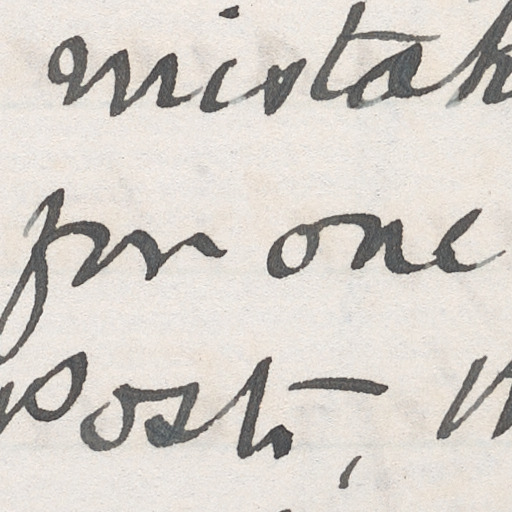 mistak
for one
Post,